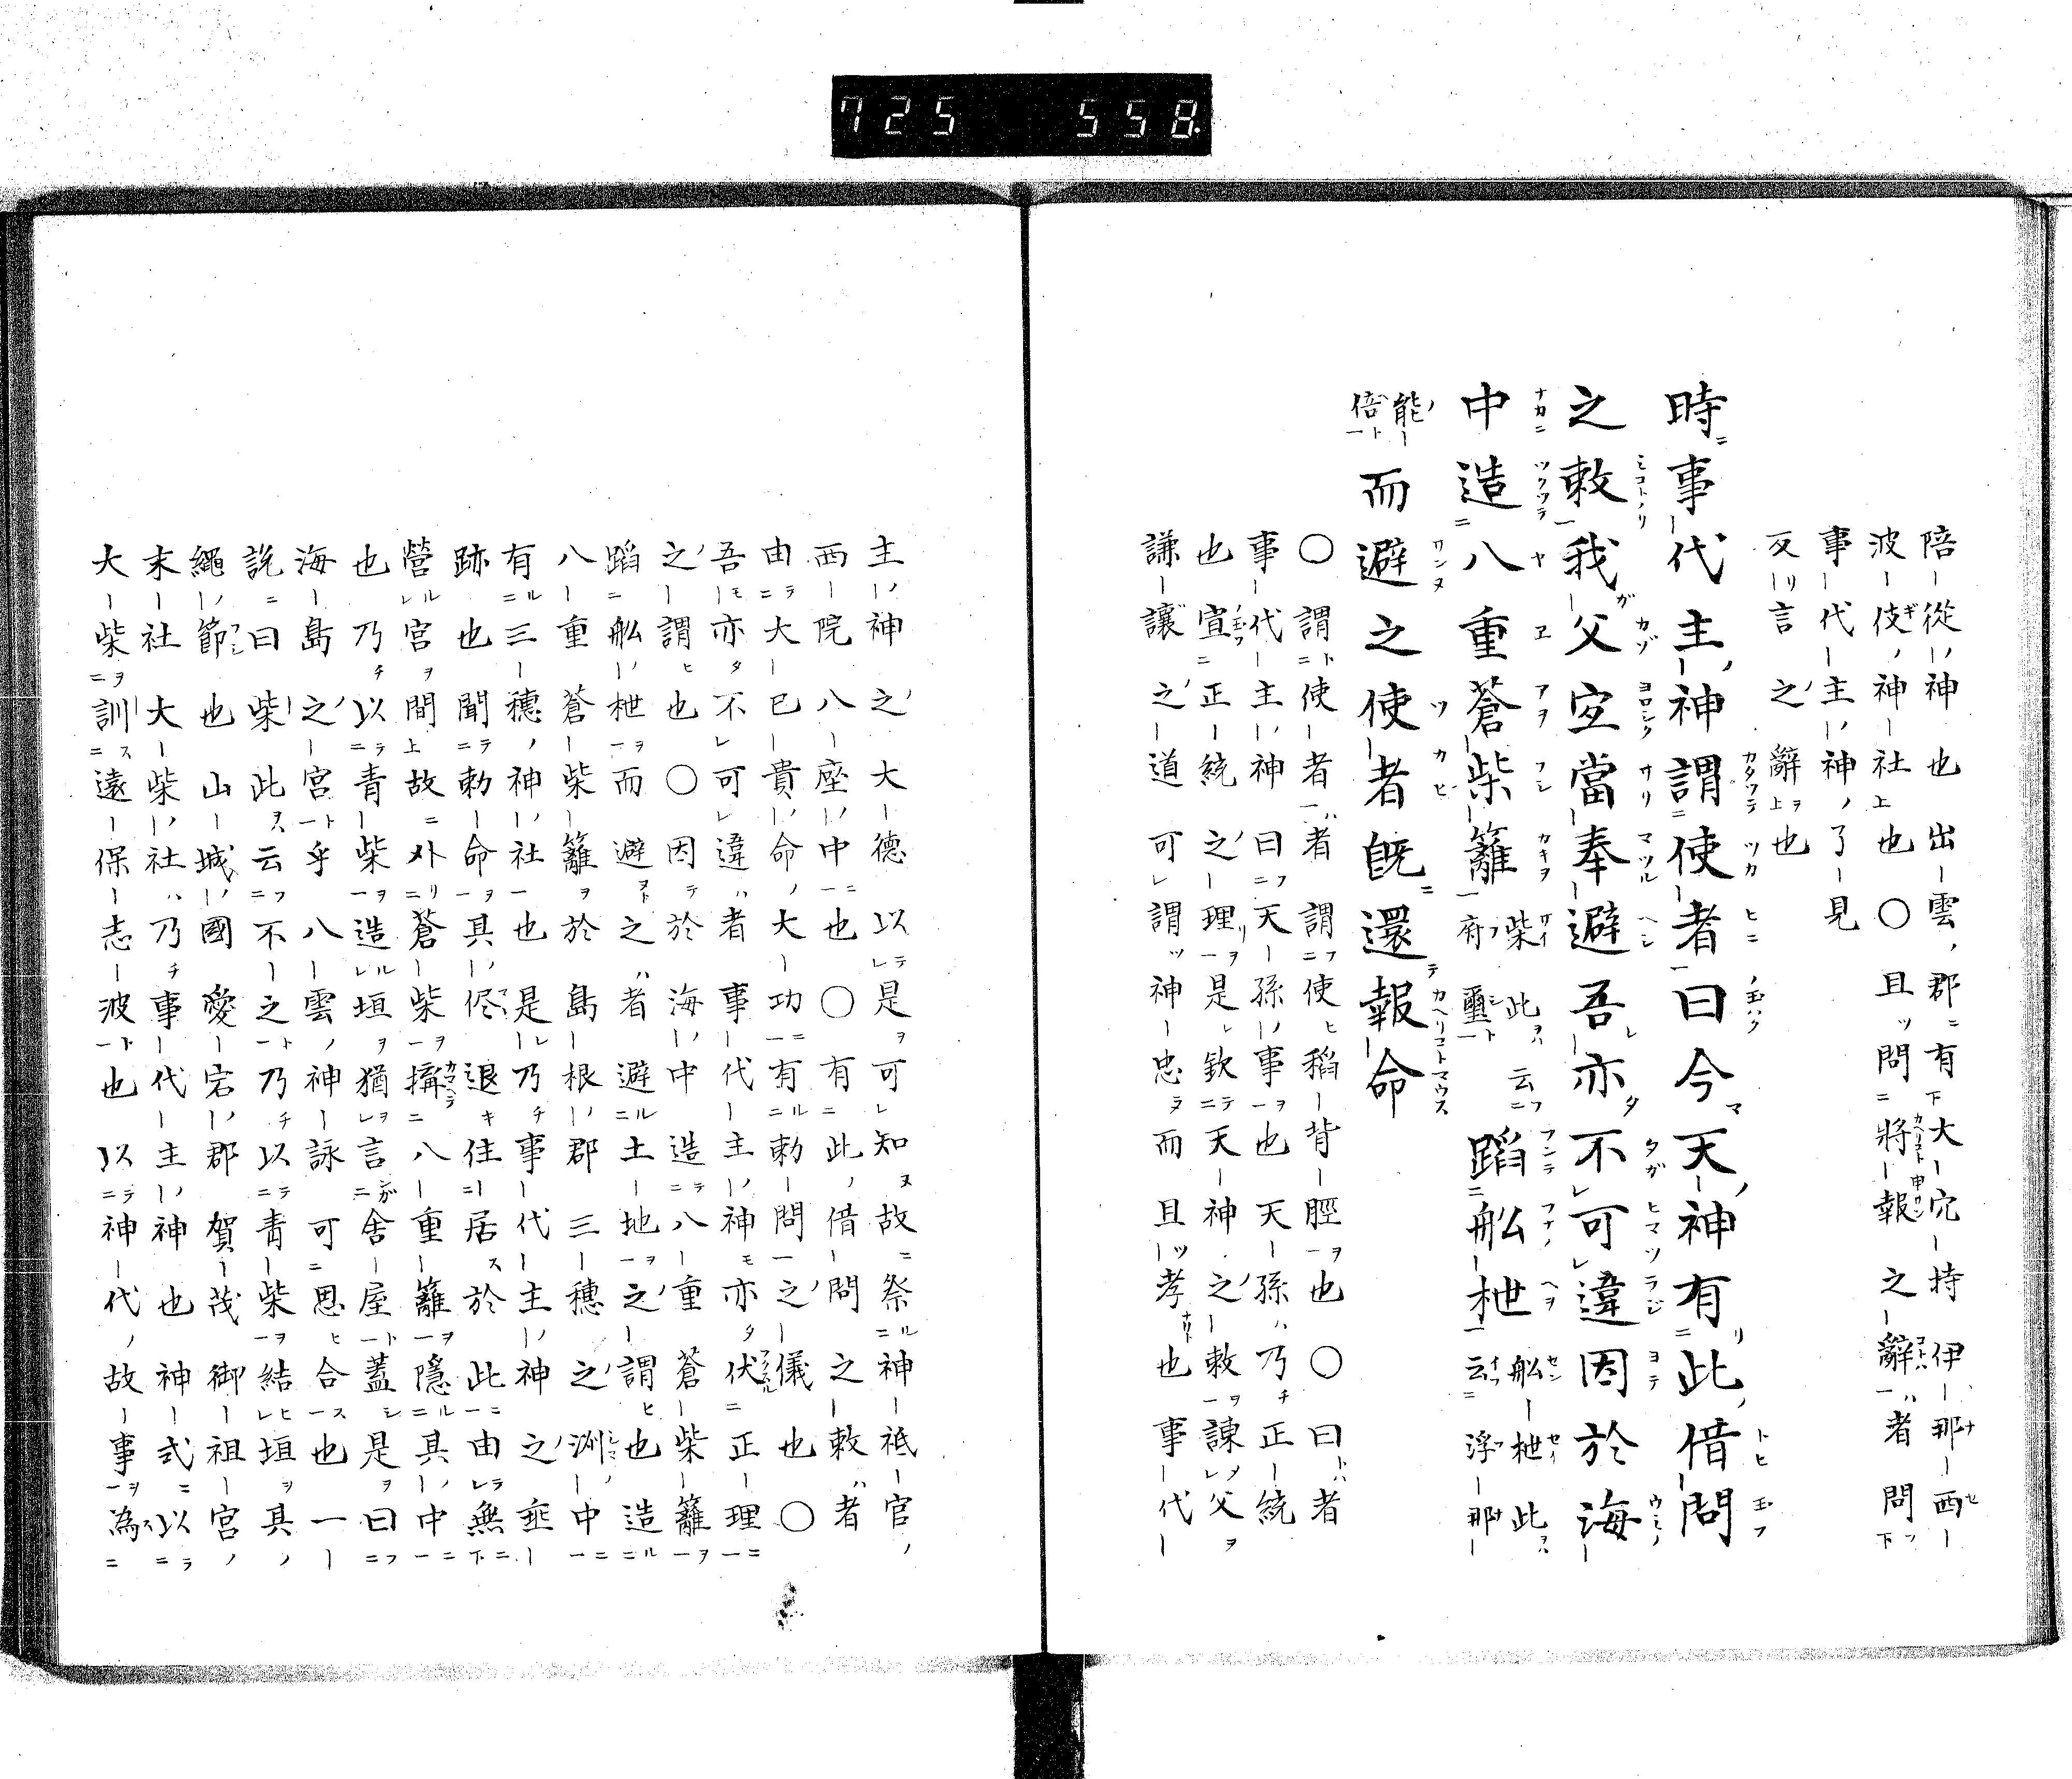 725 558
陪從神也出雲郡有大穴持伊那西
波伎神社也〇且問將報之辭者問
事代主神了見
反言之辭也
時事代主神謂使者曰今天神有此借問
之敕我父宜當奉避吾亦不可違因於海
中造八重蒼柴籬柴此云府璽蹈船枻船枻此云浮那
能倍而避之使者既還報命
〇謂使者者謂使稻背脛也〇曰者
事代主神曰天孫事也天孫乃正統
也宣正統之理是欽天神之敕諫父
謙讓之道可謂神忠而且孝也事代
主神之大德以是可知故祭神祇官
西院八座中也〇有此借問之敕者
由大已貴命大功有勅問之儀也〇
吾亦不可違者事代主神亦伏正理
之謂也〇因於海中造八重蒼柴籬
蹈船枻而避之者避土地之謂也造
八重蒼柴籬於島根郡三穗之洲中
有三穗神社也是乃事代主神之垂
跡也聞勅命其侭退住居於此由無
營宮間故外蒼柴搆八重籬隱其中
也乃以青柴造垣猶言舍屋蓋是曰
海島之宮乎八雲神詠可思合也一
説曰柴此云不之乃以青柴結垣其
繩節也山城國愛宕郡賀茂御祖宮
末社大柴社乃事代主神也神式以
大柴訓遠保志波也以神代故事為